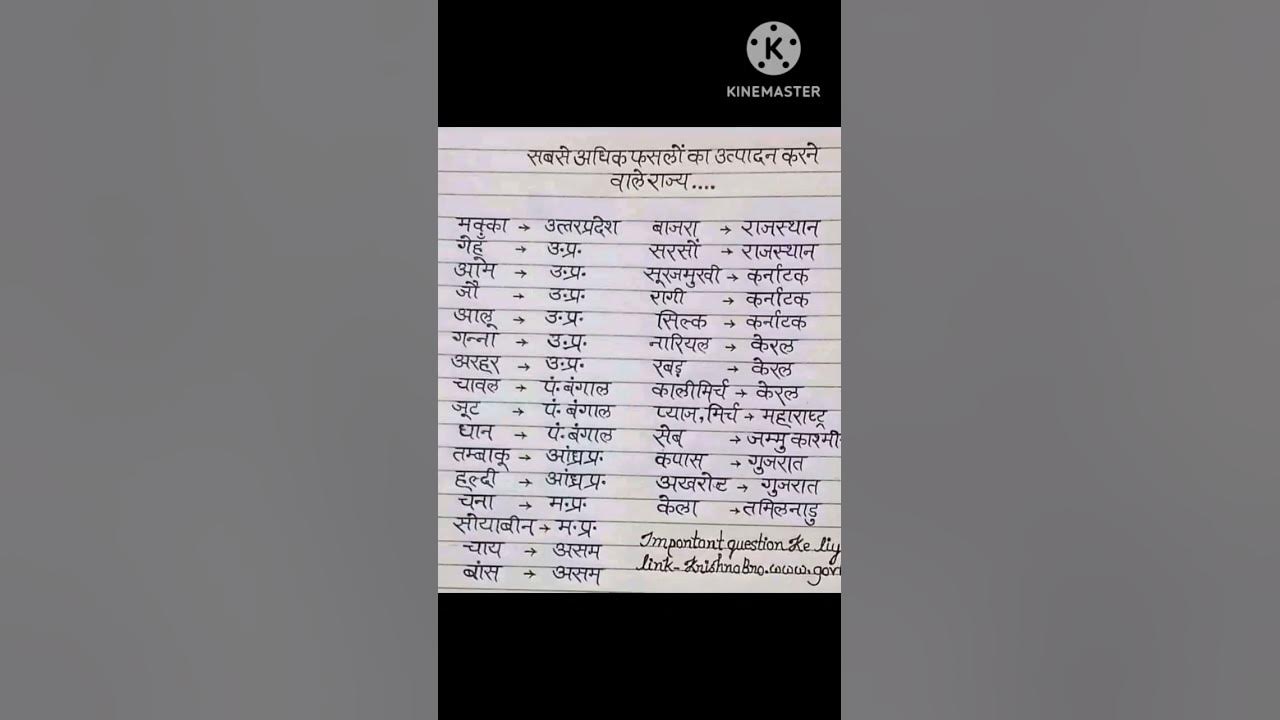 KINEMASTER
सबसे अधिक फसलों का उत्पादन करने
वाले राज्य....
मक्का → उत्तरप्रदेश
गेहूँ → उ.प्र.
आम → उ.प्र.
जौ → उ.प्र.
आलू → उ.प्र.
गन्ना → उ.प्र.
अरहर → उ.प्र.
चावल → पं. बंगाल
जूट → पं. बंगाल
धान → पं. बंगाल
तम्बाकू → आंध्रप्र.
हल्दी → आंध्रप्र.
चना → म.प्र.
सोयाबीन → म.प्र.
चाय → असम
बांस → असम
बाजरा → राजस्थान
सरसों → राजस्थान
सूरजमुखी → कर्नाटक
रागी → कर्नाटक
सिल्क → कर्नाटक
नारियल → केरल
रबड़ → केरल
कालीमिर्च → केरल
प्याज, मिर्च → महाराष्ट्र
सेब → जम्मु काश्मी
कपास → गुजरात
अखरोट → गुजरात
केला → तमिलनाडु
Impontant question Ke liy
link-KrishnaBro.www.gov